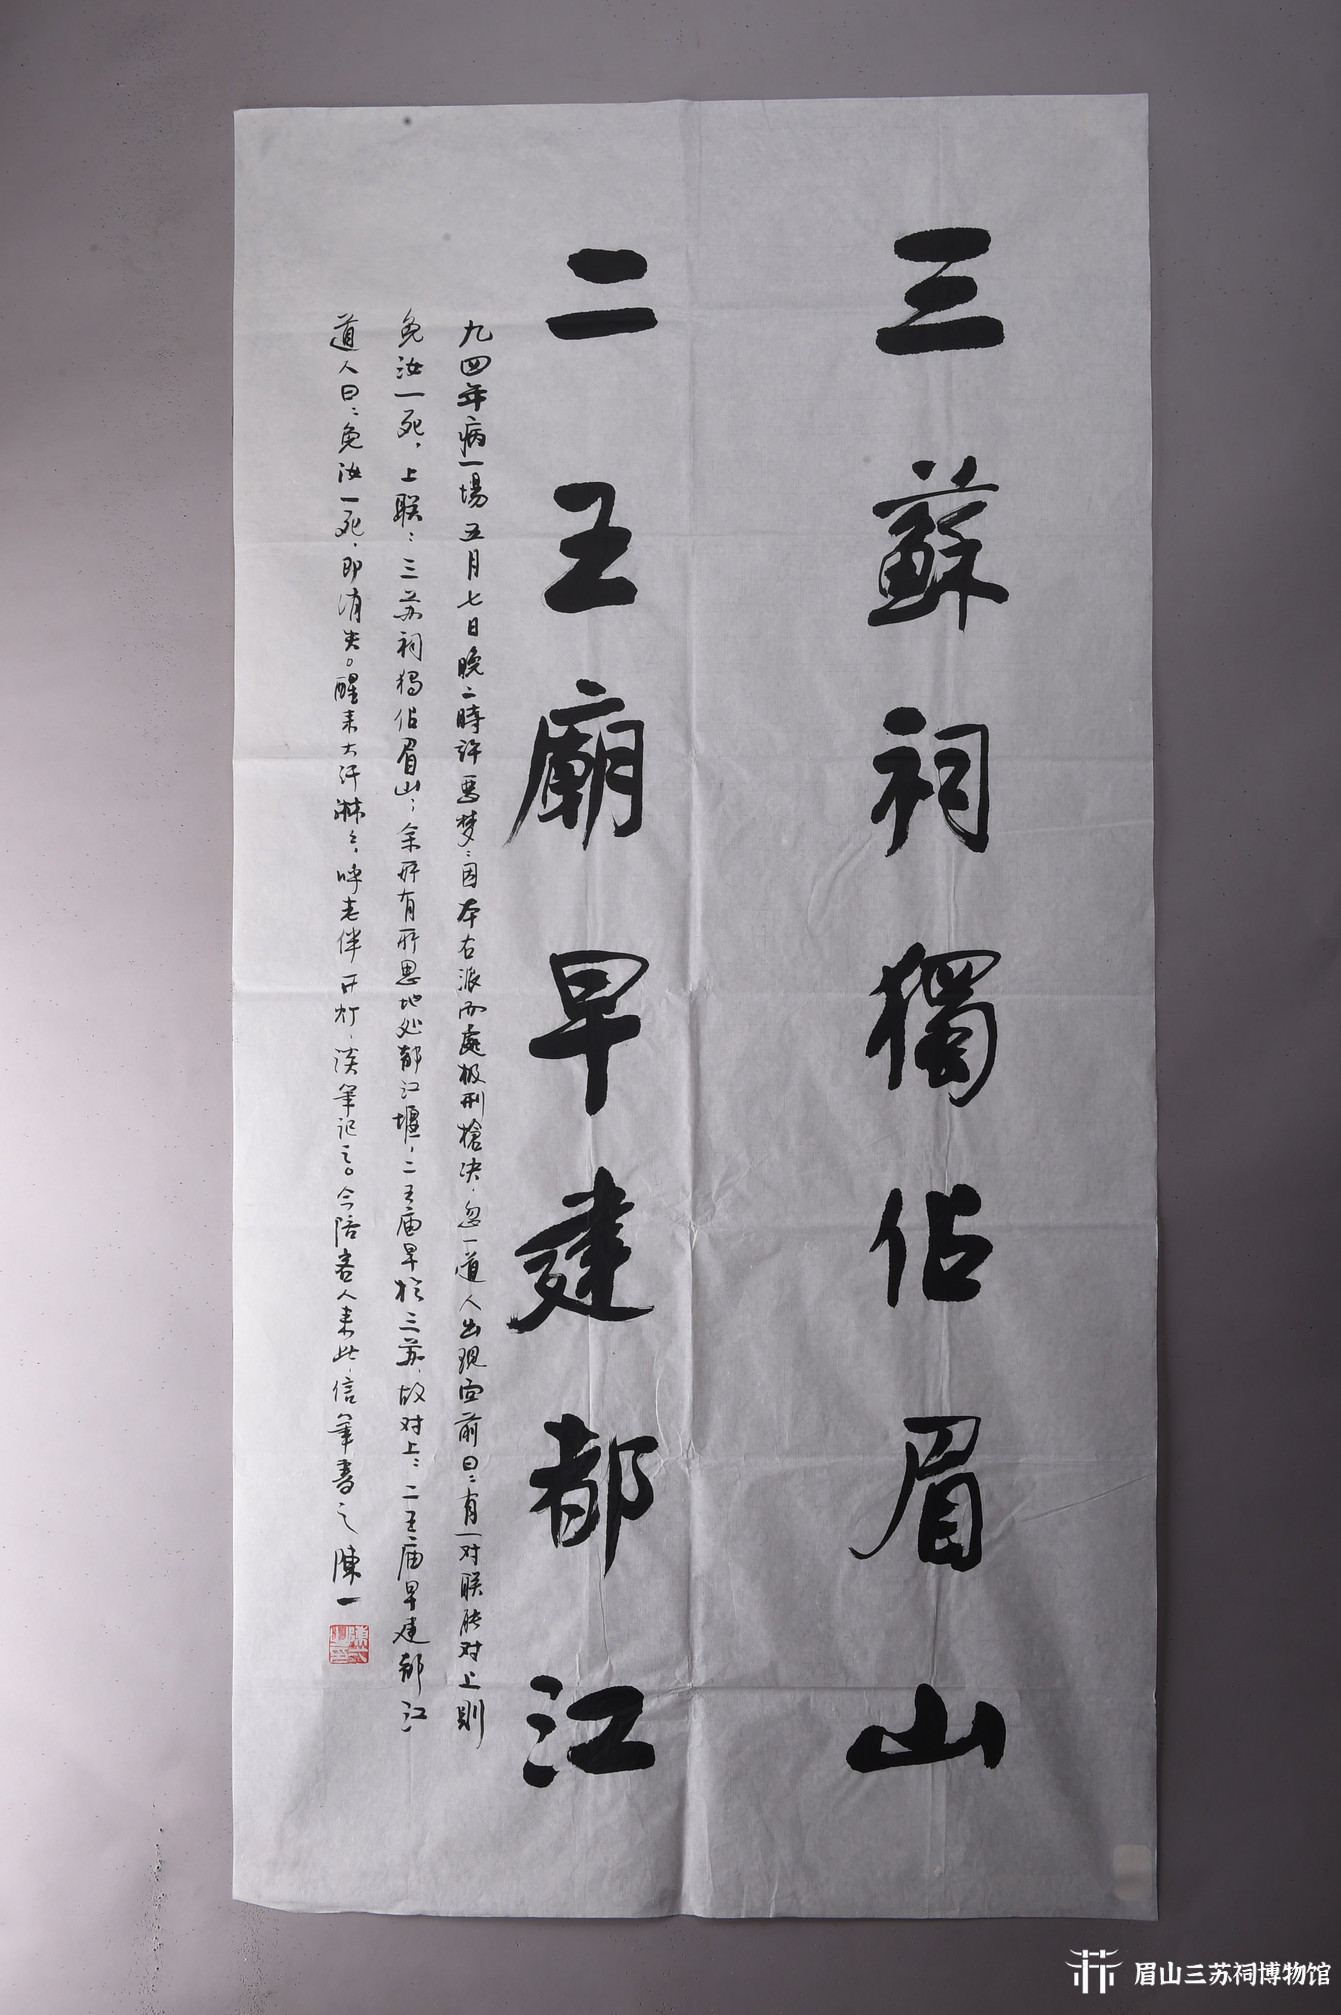 三蘇祠獨佔眉山
二王廟早建都江
九四年病一場五月七日晚二時许恶梦：因本右派而處极刑槍决，忽一道人出現面前曰：有一对联能对上则
免汝一死，上联：三苏祠獨佔眉山；余所有所思地处都江堰，二王庙早於三苏，故对上：二王庙早建都江
道人曰：免汝一死，即消失。醒来大汗淋々，呼老伴开灯，淡筆记之。今陪客人来此，信筆書之 陳一
眉山三苏祠博物馆